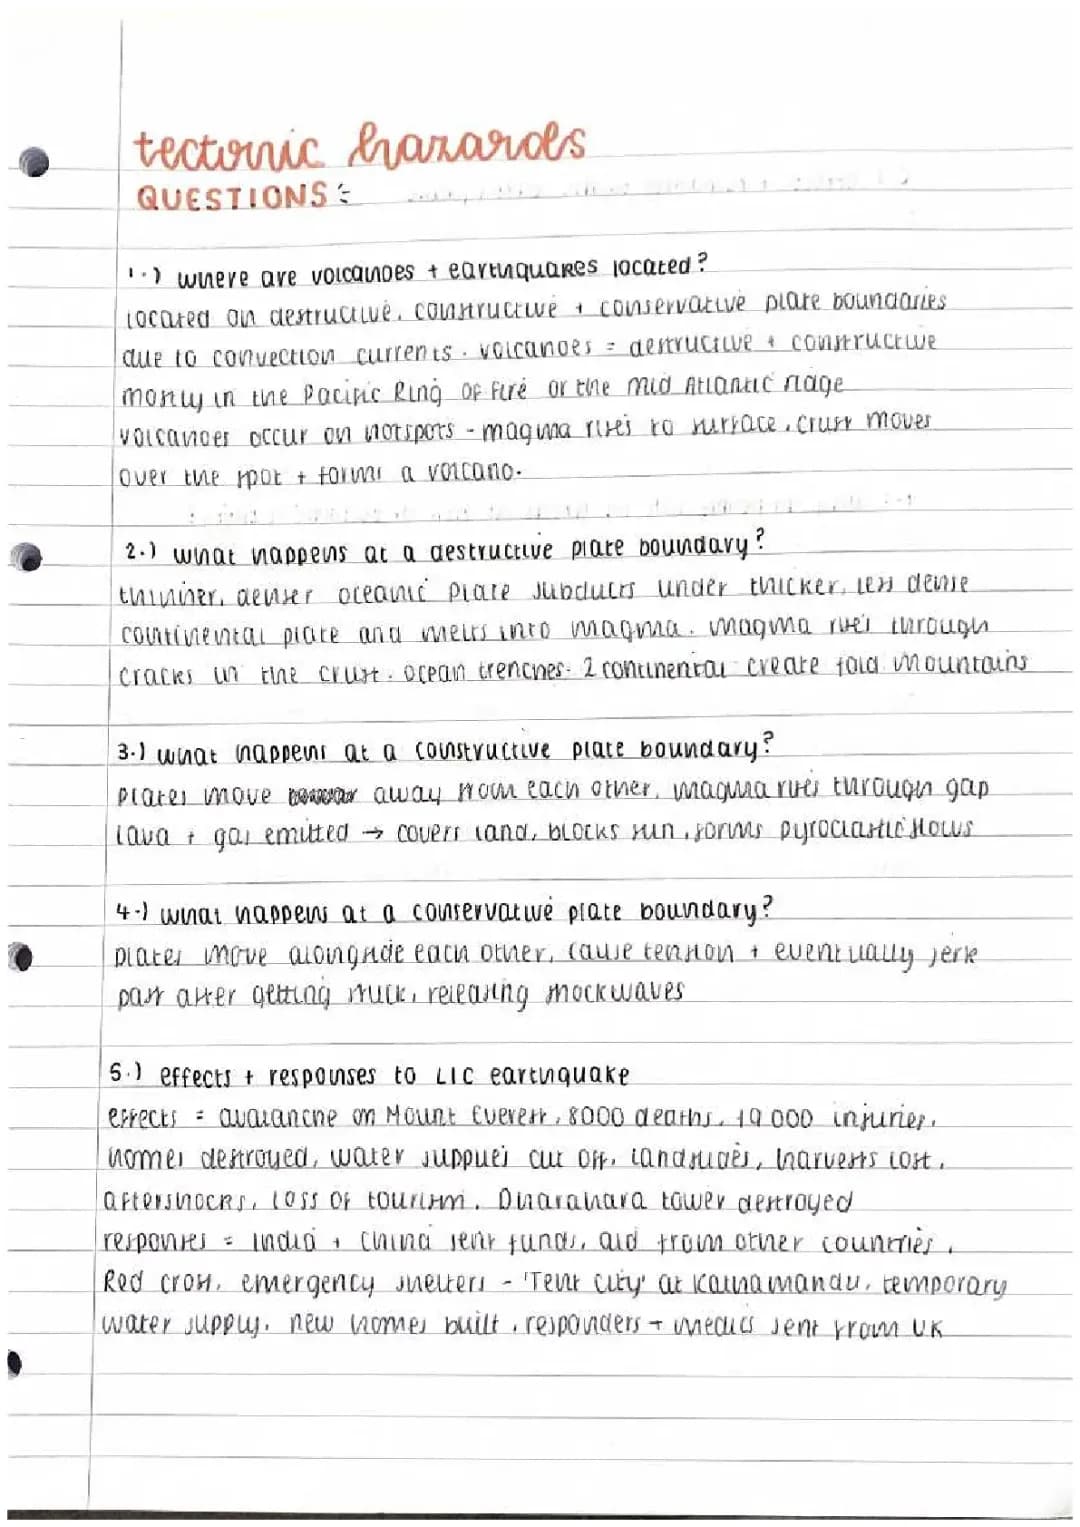 tectonic hazards
QUESTIONS:
1.) where are volcanoes + earthquakes located?
located on destructive, constructive + conservative plate boundaries
due to convection currents. volcanoes = destructive + constructive
mostly in the Pacific Ring of Fire or the mid Atlantic ridge
volcanoes occur on hotspots - magma rises to surface, crust moves
over the spot + forms a volcano.
2.) what happens at a destructive plate boundary?
thinner, denser oceanic plate subducts under thicker, less dense
continental plate and melts into magma. magma rises through
cracks in the crust. ocean trenches. 2 continental create fold mountains
3.) what happens at a constructive plate boundary?
plates move away from each other, magma rises through gap
lava + gas emitted → covers land, blocks sun, forms pyroclastic flows
4.) what happens at a conservative plate boundary?
plates move alongside each other, cause tension + eventually jerk
past after getting stuck, releasing shockwaves
5.) effects + responses to LIC earthquake
effects = avalanche on Mount Everest, 8000 deaths, 19 000 injuries,
homes destroyed, water supplies cut off, landslides, harvests lost,
aftershocks, loss of tourism, Dharahara tower destroyed
responses = india + china sent funds, aid from other countries,
Red cross, emergency shelters - 'Tent city' at Kathamandu, temporary
water supply, new homes built, responders + medics sent from UK